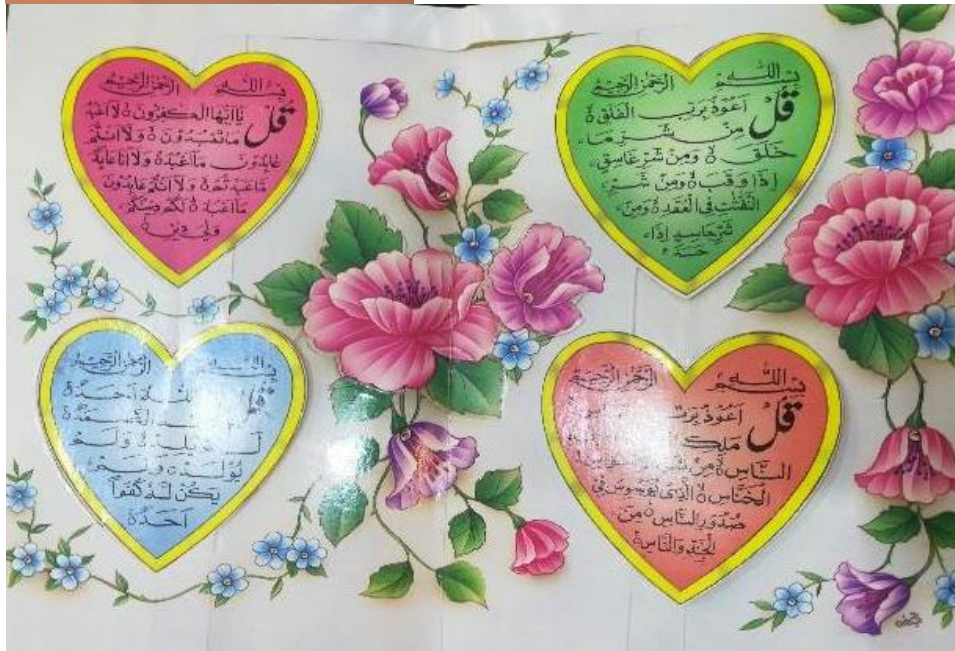 بسم الله الرحمن الرحيم
قل يا ايها الكفرون ه لا اعبد
ما تعبدون ه ولا انتم
عابدون ما اعبد ه ولا انا عابد
ما عبدتم ه ولا انتم عابدون
ما اعبد ه لكم دينكم
ولي دين ه
بسم الله الرحمن الرحيم
قل اعوذ برب الفلق ه
من شر ما
خلق ه ومن شر غاسق
اذا وقب ه ومن شر
النفثت فى العقد ه ومن
شر حاسد اذا
حسد
بسم الله الرحمن الرحيم
قل الله احد ه
الصمد ه
لم يلد ه ولم
يولد ه ولم
يكن له كفوا
احد ه
بسم الله الرحمن الرحيم
قل اعوذ برب
ملك
الناس ه من
الخناس ه الذى يوسوس فى
صدور الناس ه من
الجنة والناس ه